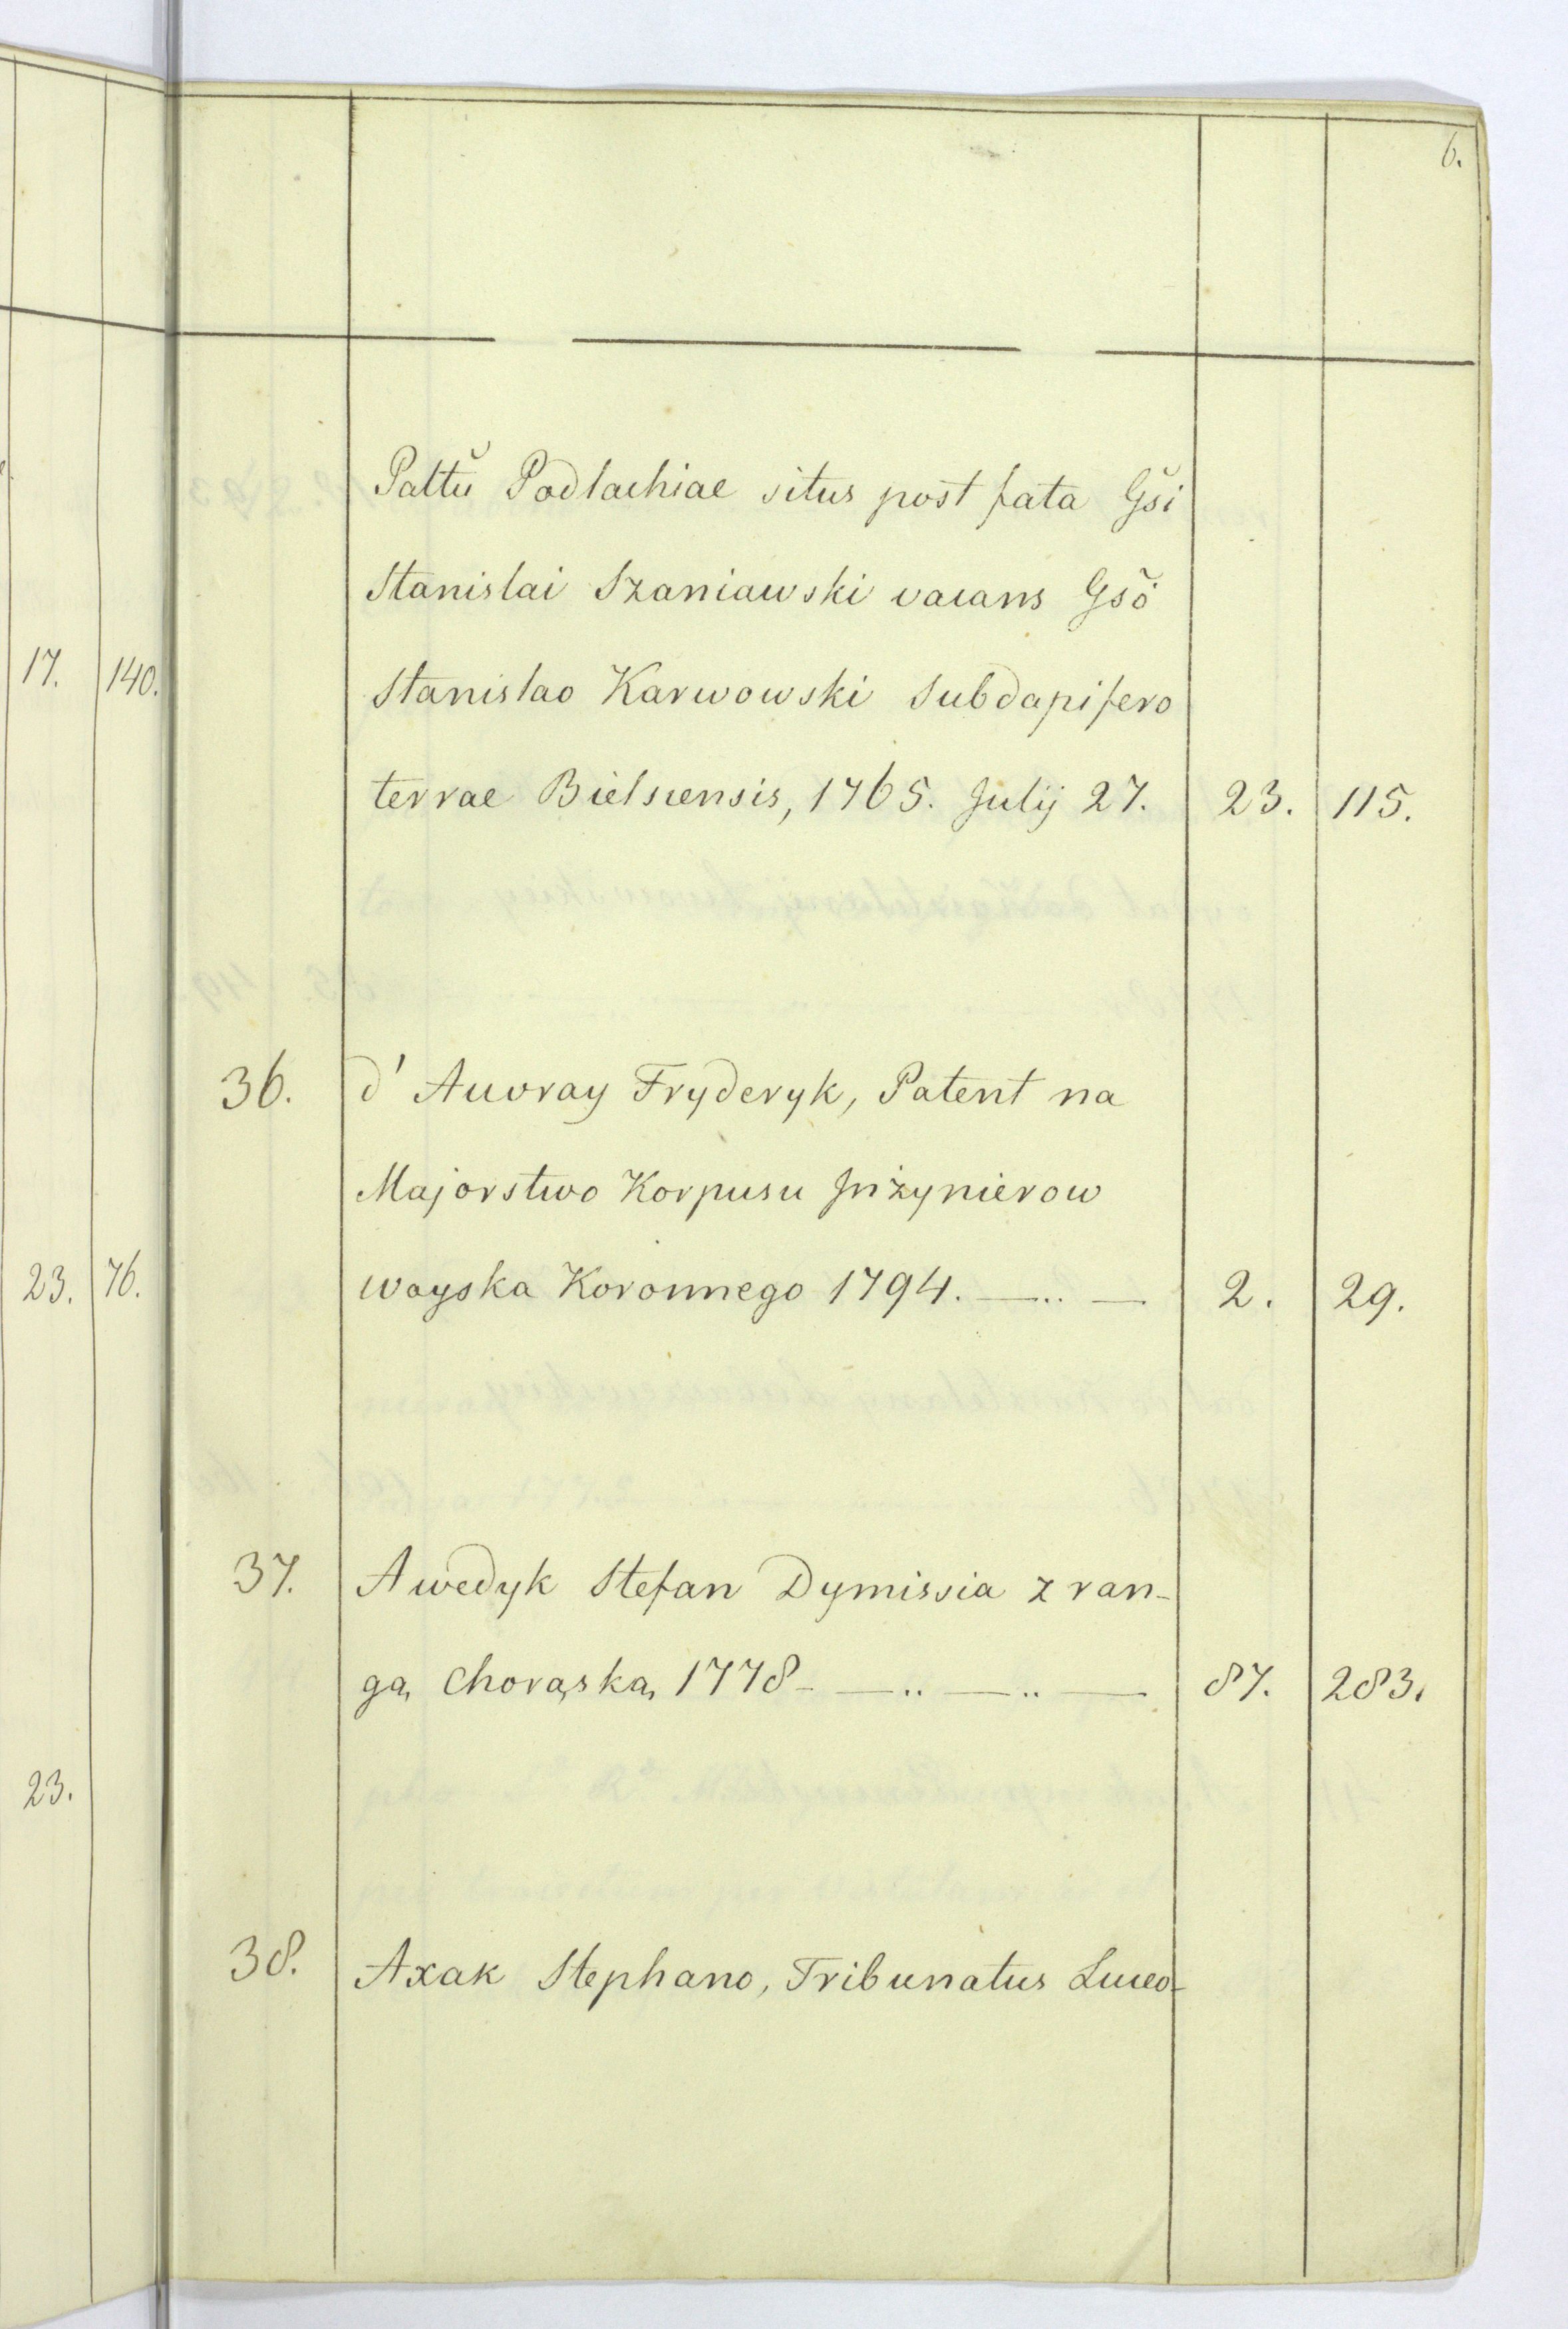 6.
Palttū Podlachiae situs post fata Gši
Stanislai Szaniawski vacans Gšo
17. 140.
Stanislao Karwowski Subdapifero
terrae Bielscensis, 1765. Julij 27. 23. 115.
36. d'Auvray Fryderyk, Patent na
Majorstwo Korpusu Jnżynierow
23. 76.
woyska Koronnego 1794. —..— 2. 29.
37. Awedyk Stefan Dymissia z ran-
gą Chorąską 1778- —..—..— 87. 283.
23.
38. Axak Stephano, Tribunatus Luceo-